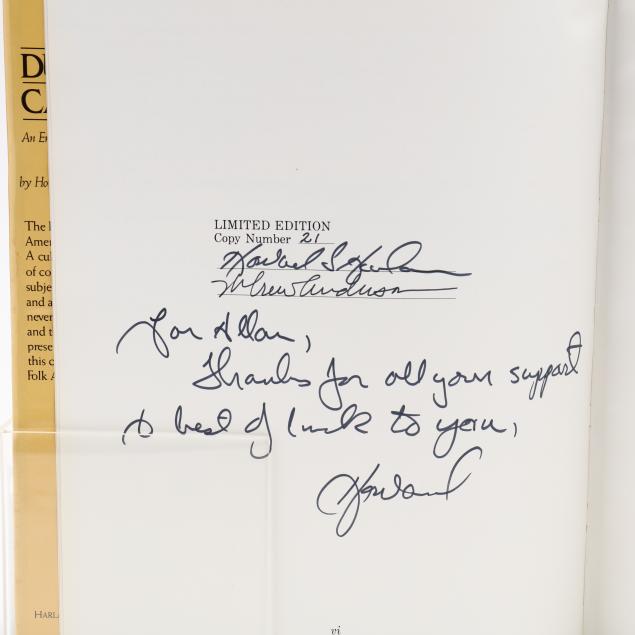 DU
CA
An En
by Ho
The
Amer
A cul
of co
subje
and a
never
and t
prese
this c
Folk A
HARLA
LIMITED EDITION
Copy Number 21
Howard S Harlan
W Crew Anderson
For Allan,
Thanks for all your support
& best of luck to you,
Howard
vi